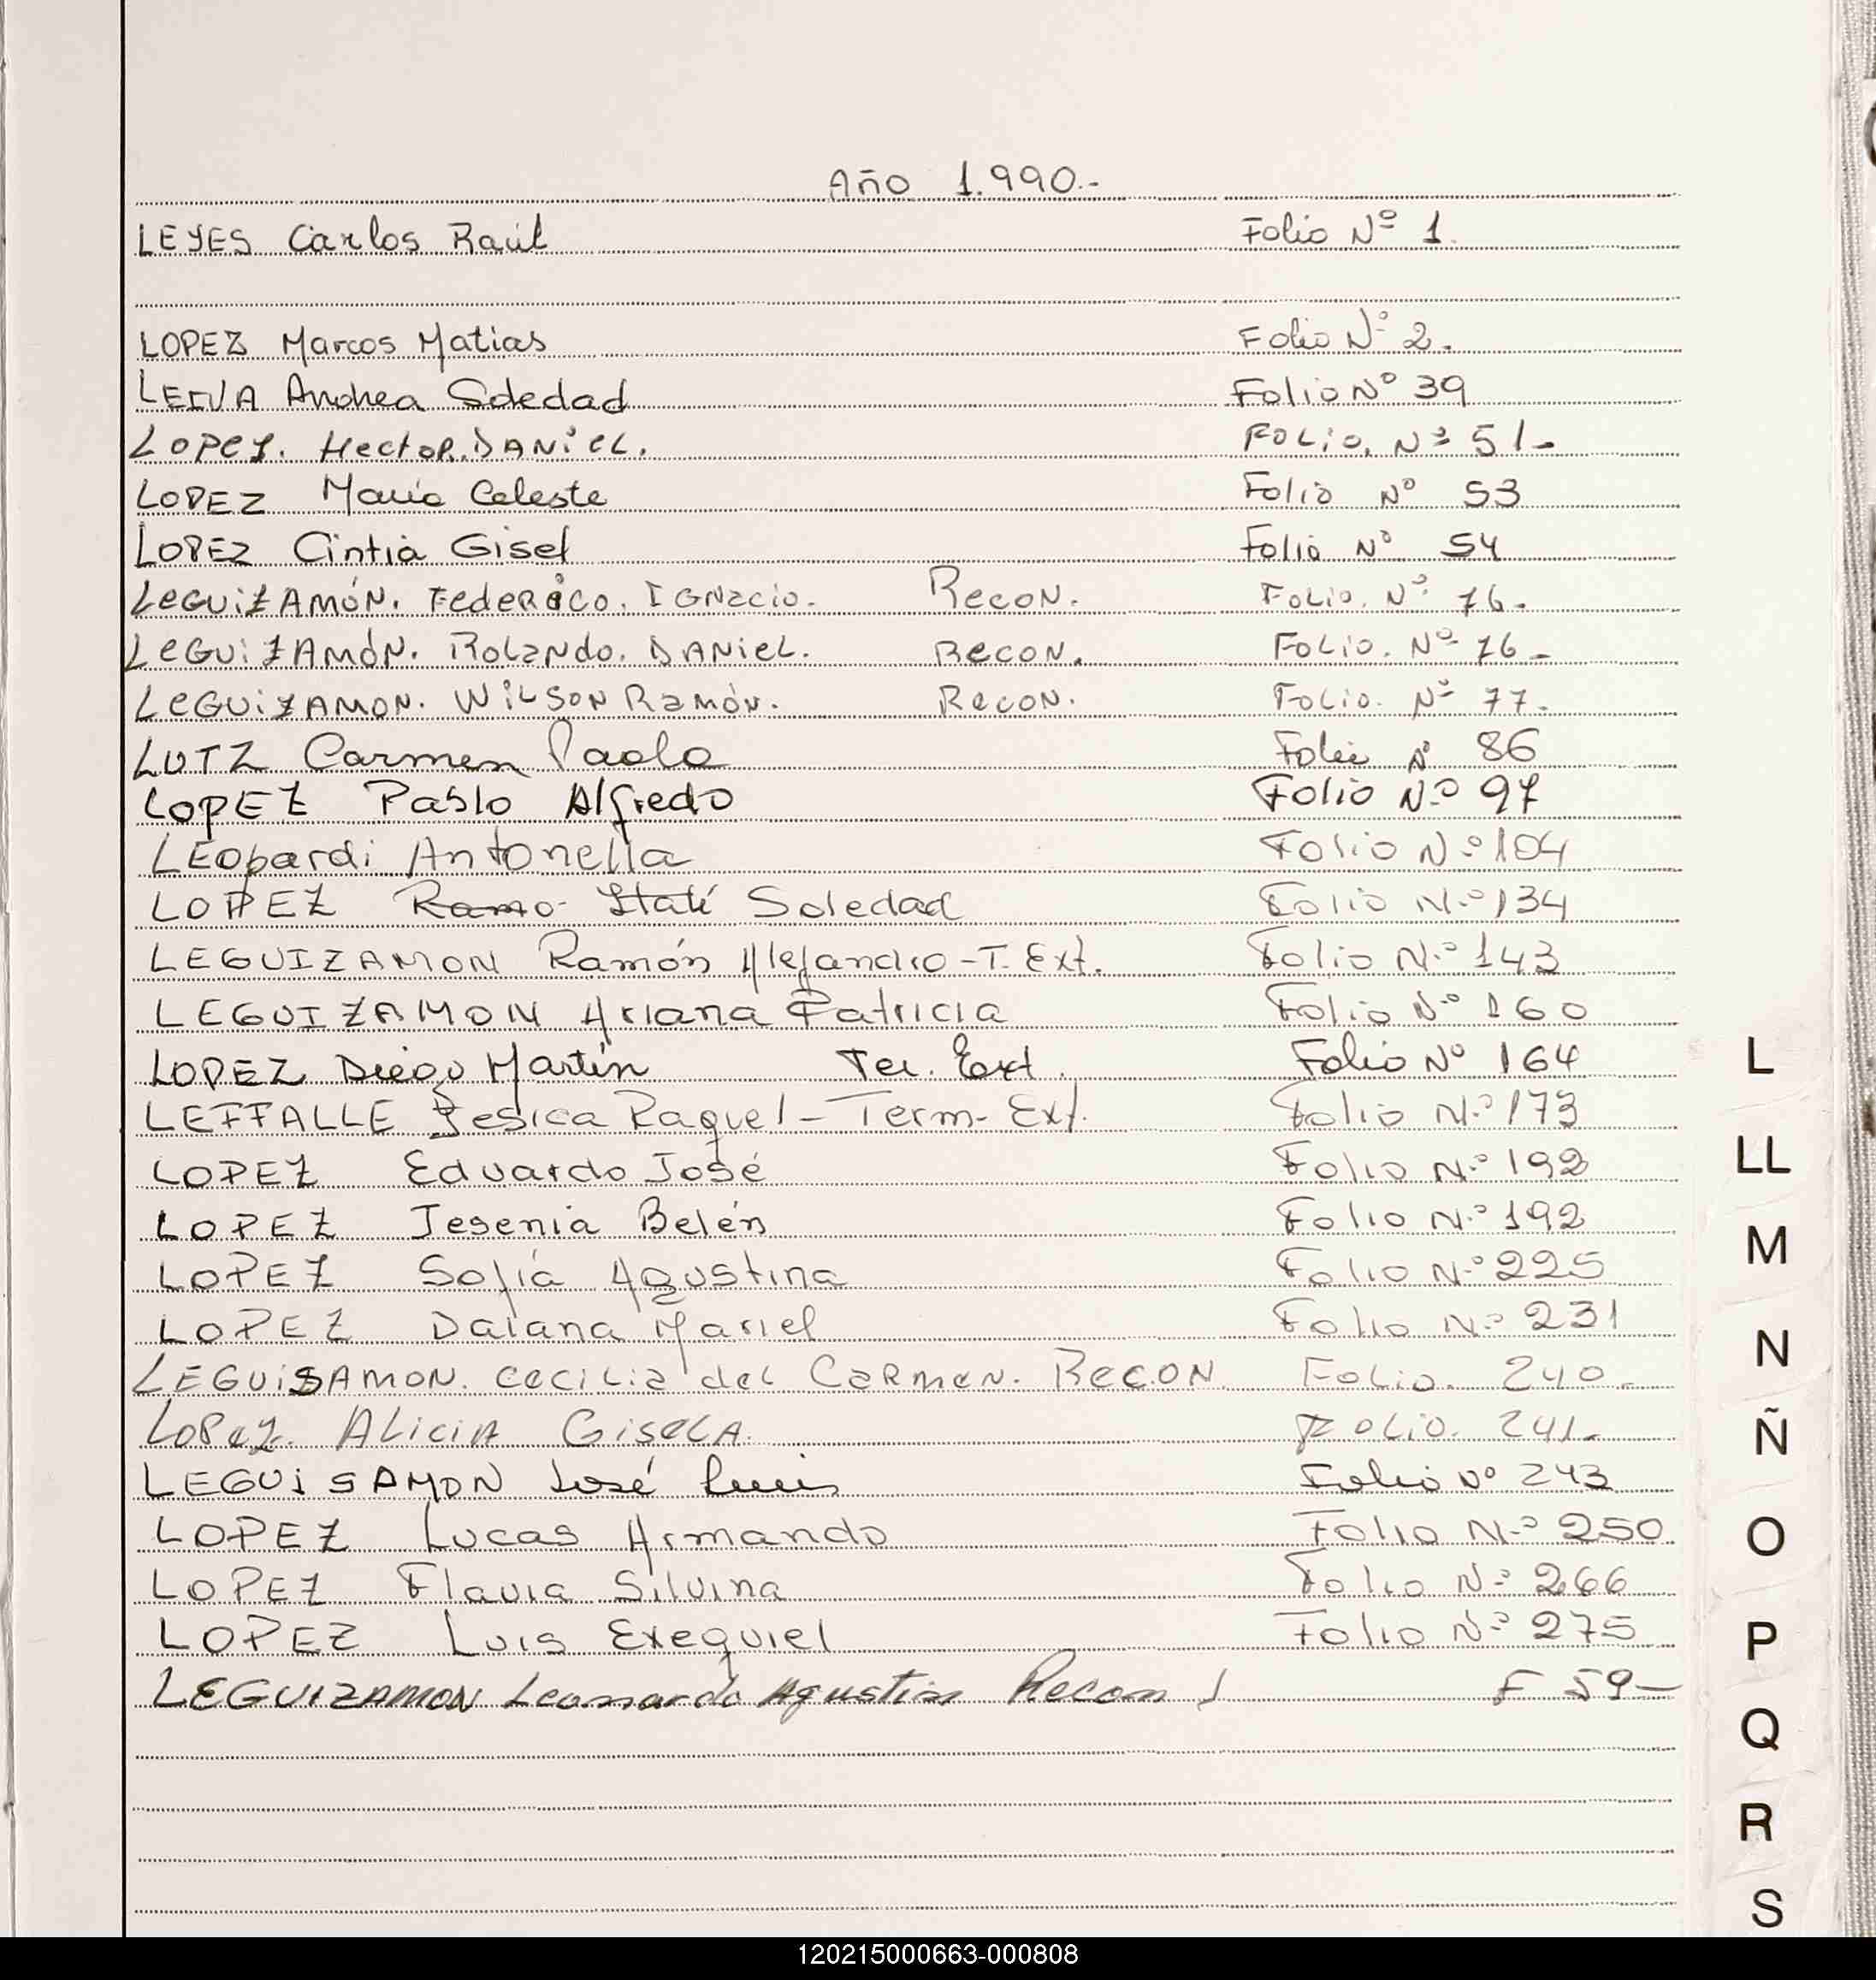 Año 1.990.-
LEYES Carlos Raúl Folio Nº 1.
LOPEZ Marcos Matias Folio Nº 2.
LEIVA Andrea Soledad Folio Nº 39
Lopez. Hector. DANiEL. Folio. Nº 51-
LOPEZ María Celeste Folio Nº 53
LOPEZ Cintia Gisel Folio Nº 54
LeGUiZAMÓN. FedeRico. IGNacio. Recon. Folio. Nº 76.
LeGUiZAMÓN. RoLaNdo. DANieL. Recon. Folio. Nº 76-
LeGUiZAMON. WiLSON RaMóN. Recon. Folio. Nº 77.
LUTZ Carmen Paola Folio Nº 86
LOPEZ Pablo Alfredo Folio Nº 97
LEopardi Antonella Folio Nº 104
LOPEZ Ramo Itatí Soledad Folio Nº 134
LEGUIZAMON Ramón Alejandro - T. Ext. Folio Nº 143
LEGUIZAMON Ariana Patricia Folio Nº 160
LOPEZ Diego Martín Ter. Ext. Folio Nº 164
LEFFALLE Jesica Raquel - Term. Ext. Folio Nº 173
LOPEZ Eduardo José Folio Nº 192
LOPEZ Jesenia Belén Folio Nº 192
LOPEZ Sofía Agustina Folio Nº 225
LOPEZ Daiana Mariel Folio Nº 231
LEGUiSAMON. Cecilia del Carmen. Recon Folio. 240.
Lopez. Alicia Gisela. Folio. 241.
LEGUiSAMON José Luis Folio Nº 243
LOPEZ Lucas Armando Folio Nº 250
LOPEZ Flavia Silvina Folio Nº 266
LOPEZ Luis Exequiel Folio Nº 275
LEGUIZAMON Leonardo Agustin Recon I F 59-
L
LL
M
N
Ñ
O
P
Q
R
S
120215000663-000808